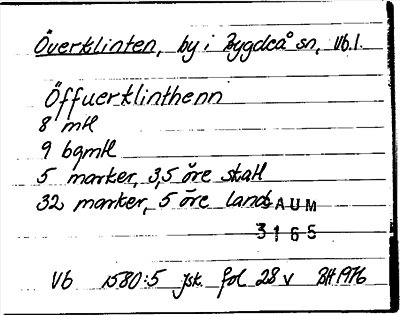 Överklinten, by i Bygdeå sn, Vb.l.
Öffuerklinthenn
8 mtl
9 bgmtl
5 marker, 3,5 öre skatt
32 marker, 5 öre lands
DAUM
3165
Vb 1580:5 jsk. fol 28 v BH 1976